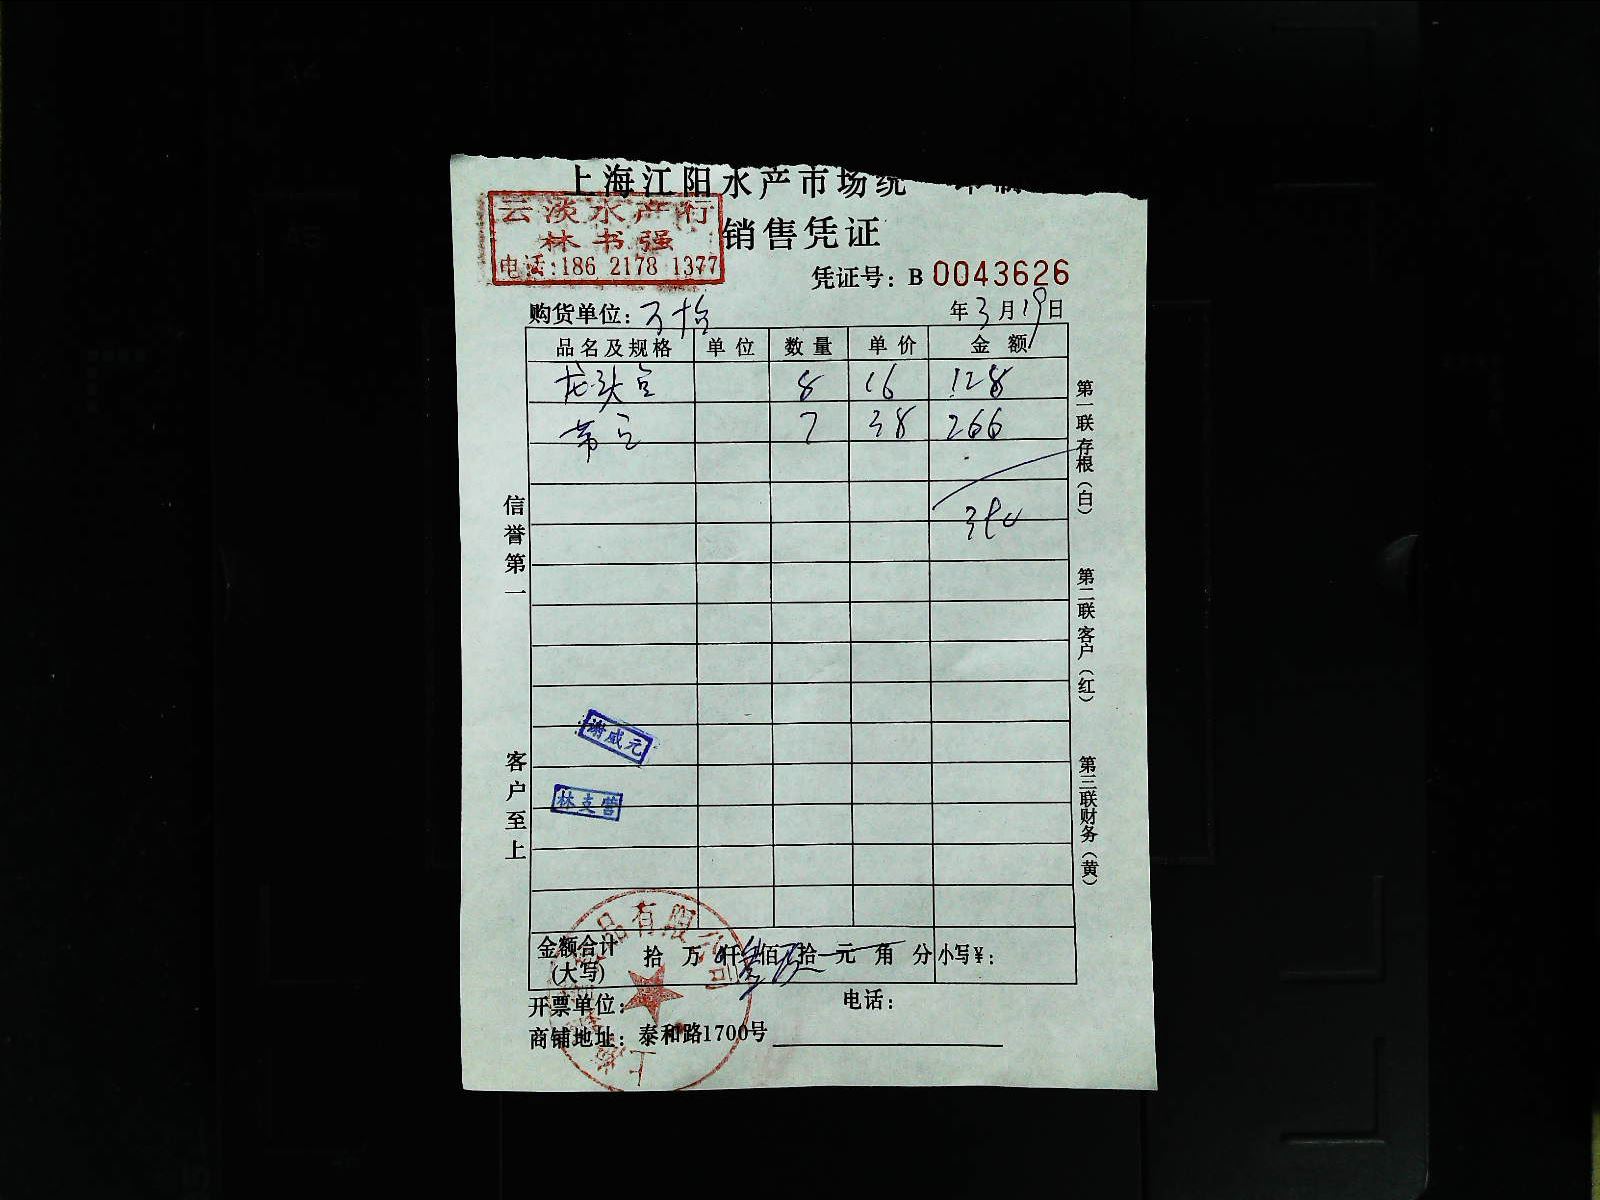 上海江阳水产市场统一印制
云淡水产行
林书强
电话:186 2178 1377
销售凭证
凭证号：B 0043626
购货单位：万怡
年3月19日
品名及规格 单位 数量 单价 金额
龙头 8 16 128
带 7 38 266
394
信誉第一
客户至上
第一联存根（白）
第二联客户（红）
第三联财务（黄）
谢威元
林支营
金额合计（大写） 拾 万 仟 佰 拾 元 角 分 小写￥：
品有限公司
上海
开票单位：
电话：
商铺地址：泰和路1700号